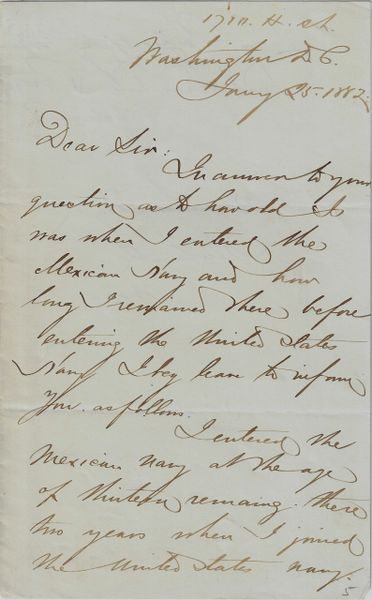 H. st.
Washington D.C.
Jany 25. 1882.
Dear Sir:
In answer to your
question as to how old I
was when I entered the
Mexican Navy and how
long I remained there before
entering the United States
Navy I beg leave to inform
you. as follows.
I entered the
Mexican navy at the age
of thirteen remaing there
two years when I joined
the United States navy.
5